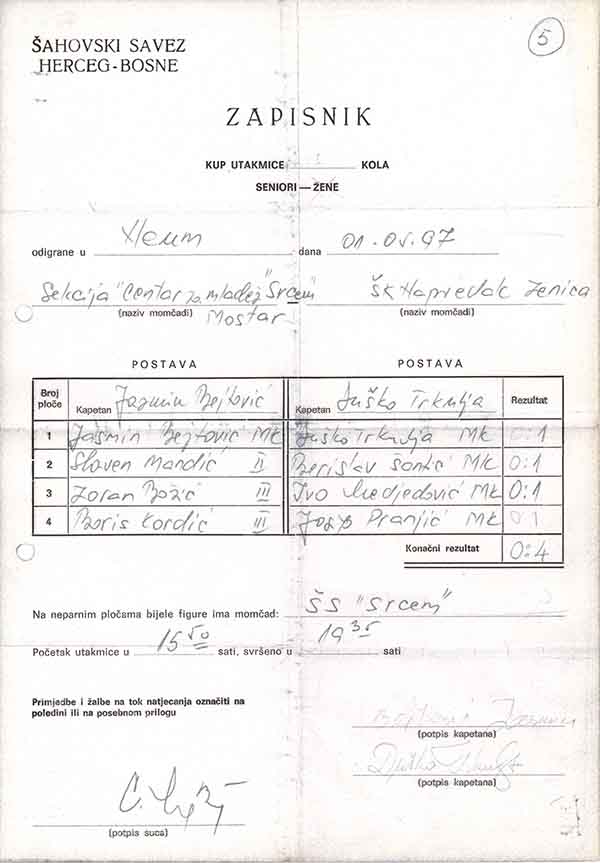 ŠAHOVSKI SAVEZ
HERCEG-BOSNE
5
ZAPISNIK
KUP UTAKMICE KOLA
SENIORI — ŽENE
odigrane u Xleum dana 01.05.97
Sekcija "Centar za mladež "Srcem" ŠK Napredak Zenica
(naziv momčadi) Mostar (naziv momčadi)
POSTAVA POSTAVA
Broj ploče Kapetan Jasmin Bejtović Kapetan Duško Trkulja Rezultat
1 Jasmin Bejtović MK Duško Trkulja MK 0:1
2 Slaven Mandić II Berislav Šantić MK 0:1
3 Zoran Božić III Ivo Medjedović MK 0:1
4 Boris Kordić III Josip Pranjić MK 0:1
Konačni rezultat 0:4
Na neparnim pločama bijele figure ima momčad: ŠS "Srcem"
Početak utakmice u 15 50 sati, svršeno u 19 35 sati
Primjedbe i žalbe na tok natjecanja označiti na
poledini ili na posebnom prilogu
Jasmin
(potpis kapetana)
Duško Trkulja
(potpis kapetana)
(potpis suca)